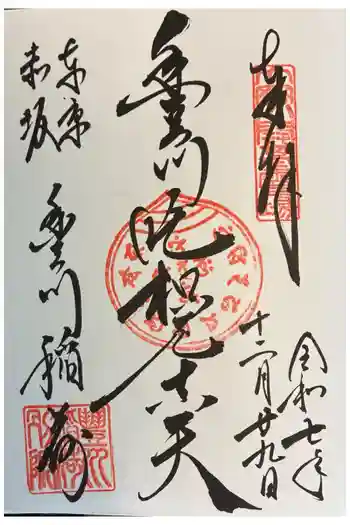 奉拝
令和七年
十二月廿九日
豊川吒枳尼真天
東京
赤坂
豊川稲荷